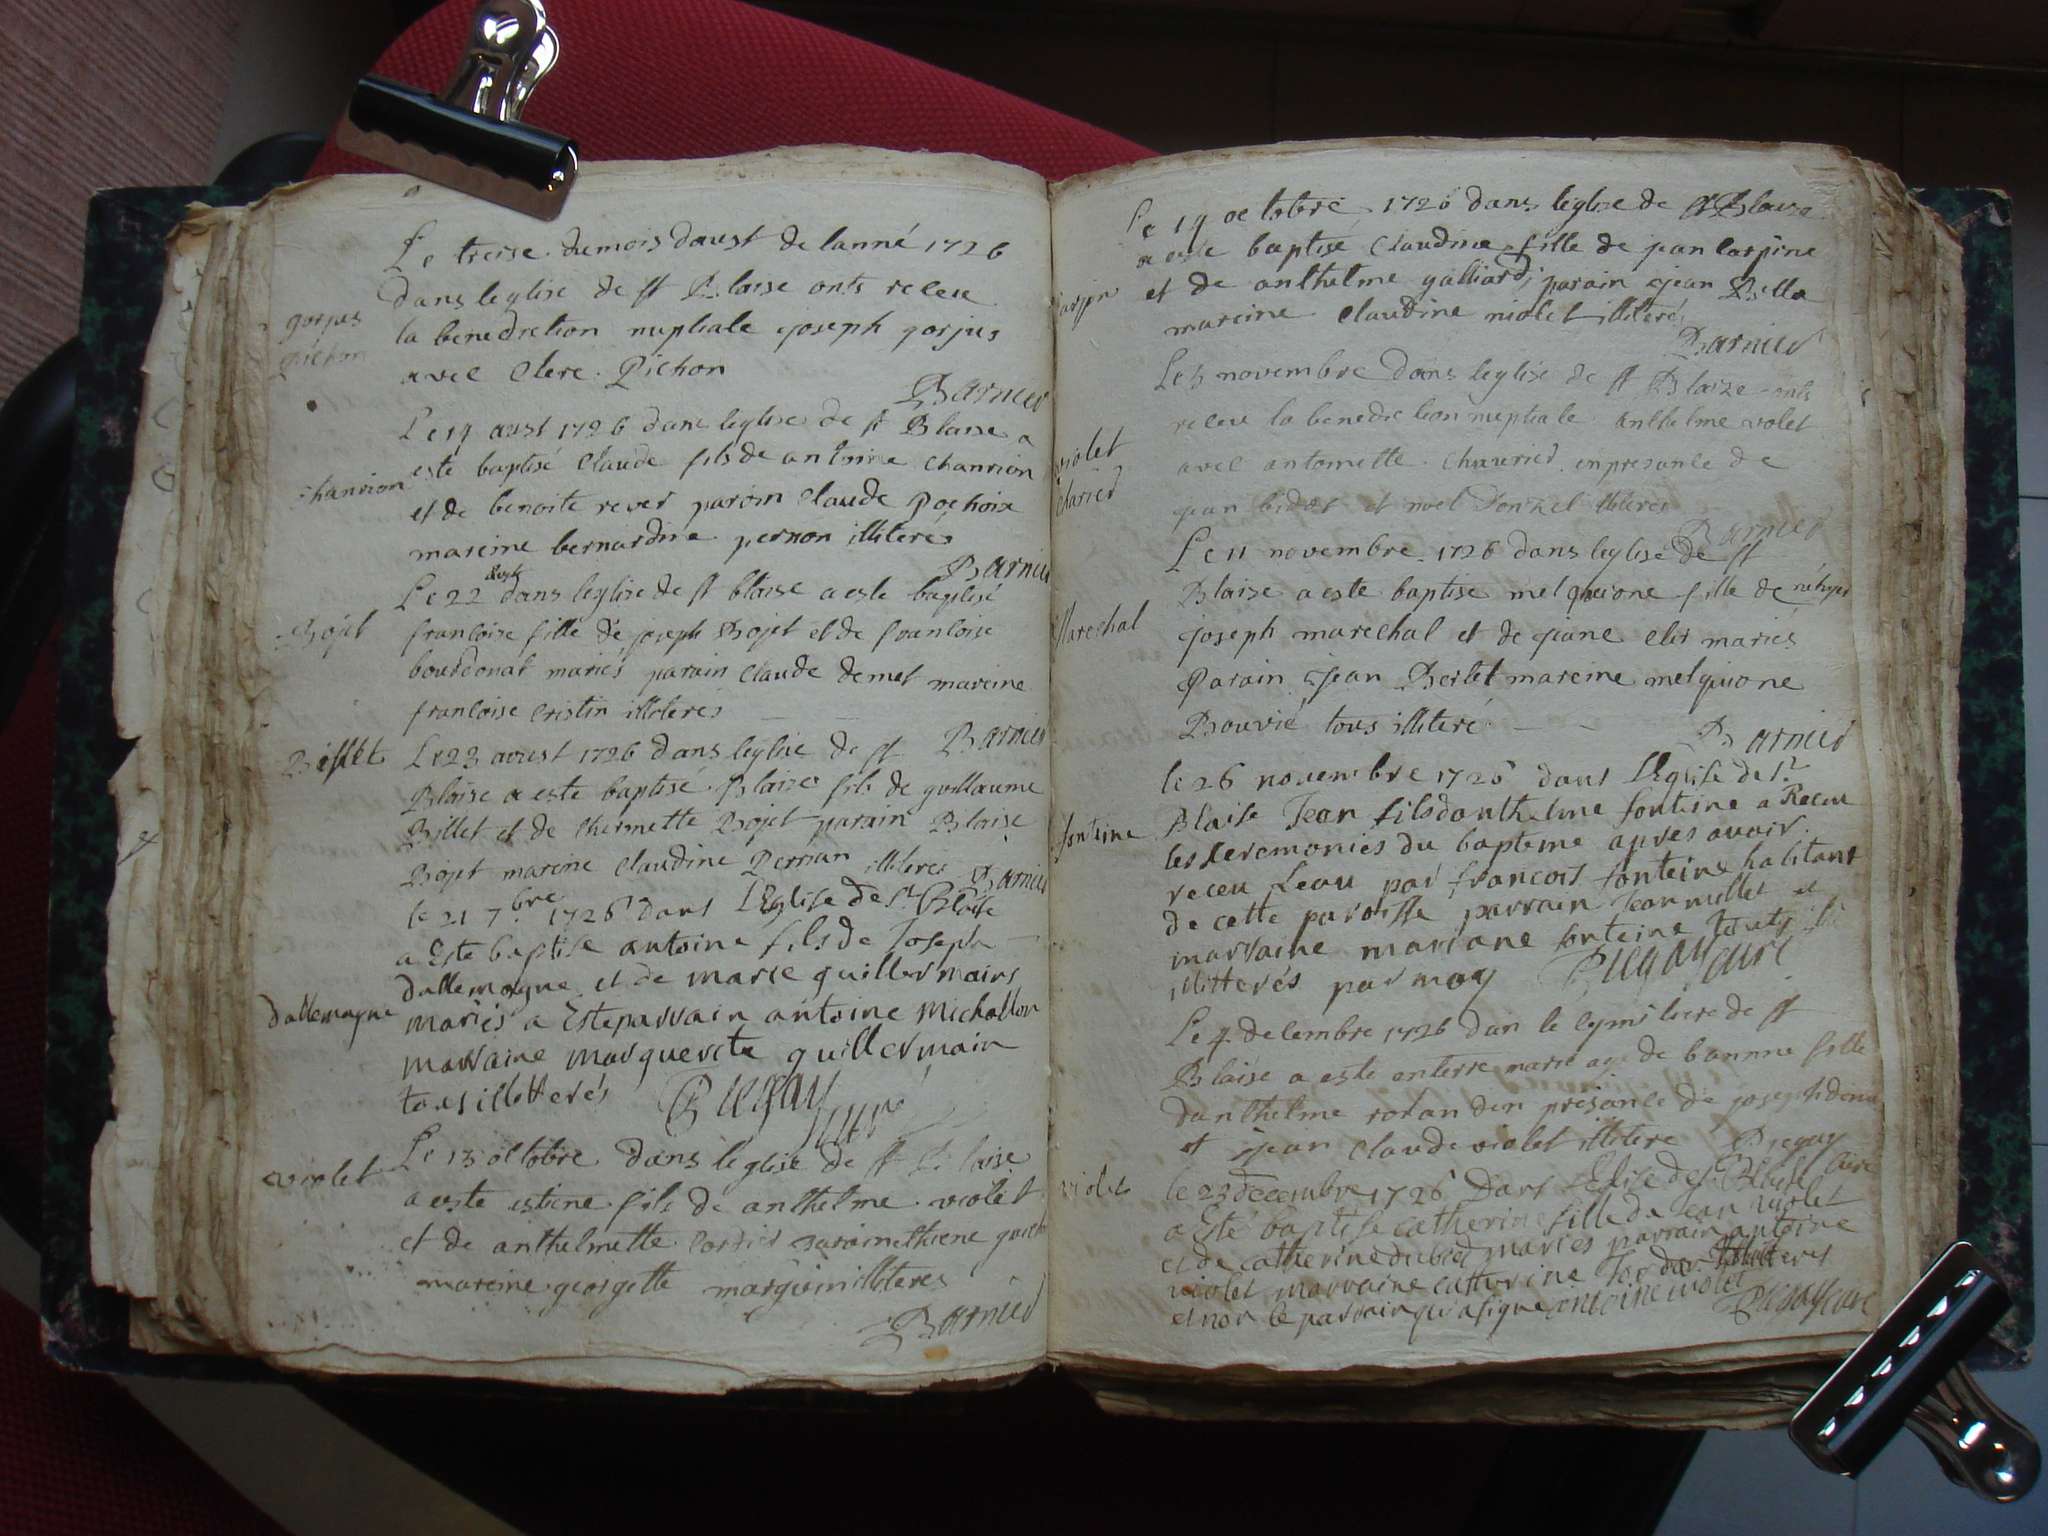 Le treise du mois daust de lanné 1726
dans leglise de st Blaise onts receu
gorjus
pichon
la benediction nuptiale joseph gorjus
avec Clere Pichon
Barnier
Le 19 aust 1726 dans leglise de st Blaise a
este baptisé Claude fils de antoine Chanrion
chanrion
et de benoite rever parain Claude pochoix
mareine bernardine pernon illiterés
Barnier
Le 22 aust dans leglise de st blaise a este baptisé
Bojet
francoise fille de joseph Bojet et de francoise
bourdonat mariés parain Claude demet mareine
francoise cristin illiterés
Barnier
Billet
Le 23 avust 1726 dans leglise de st
Blaise a este baptisé Blaise fils de guillaume
Billet et de Chermette Bojet parain Blaise
Bojet mareine Claudine Pernan illiteres
Barnier
le 21 7.bre 1726 dans LEglise de St Blaise
a Este baptise antoine fils de Joseph
dallemagne et de marie guillermains
dallemagne
mariés a Este parrain antoine Michallon
marraine marguerite guillermain
tous illitterés Pugay curé
Le 13 octobre dans leglise de st Blaise
violet
a este estine fils de anthelme violet
et de anthelmette cordier
mareine georgette margiuin illiteres
Barnier
Le 19 octobre 1726 dans leglise de st Blaise
a este baptisé Claudine fille de jean carpine
et de anthelme galliard parain jean Billa
mareine Claudine violet illiterés
Barnier
Le 3 novembre dans leglise de st Blaize onts
receu la benediction nuptiale anthelme volet
violet
charier
avec antoinette chaurier en presance de
jean bidat et noel Donzel illiteres
Barnier
Le 11 novembre 1726 dans leglise de st
Blaise a este baptise melquione fille de
Marechal
joseph marechal et de jane cler maries
Parain jean Berlet mareine melquione
Bouvié tous illiteré
Barnier
le 26 novembre 1726 dans LEglise de St
Blaise Jean fils danthelme fonteine a Receu
fonteine
les Ceremonies du bapteme apres avoir
receu Leau par francois fonteine habitant
de cette paroisse parrain Jean millet et
marraine mariane fonteine touts
illitterés par moy Pugay curé
Le 4 decembre 1726 dan le cymitiere de st
Blaise a este enterre marie age de fille
danthelme rotan den presance de joseph
et jean Claude violet illitere Pugay
curé
violet
le 23 decembre 1726 Dans LElise de St Blaise
a Esté baptise catherine fille de Jean violet
et de catherine dubied mariés parrain antoine
violet marraine catherine Illitteres
et non le parrain qui a signe antoine violet
Pugay curé